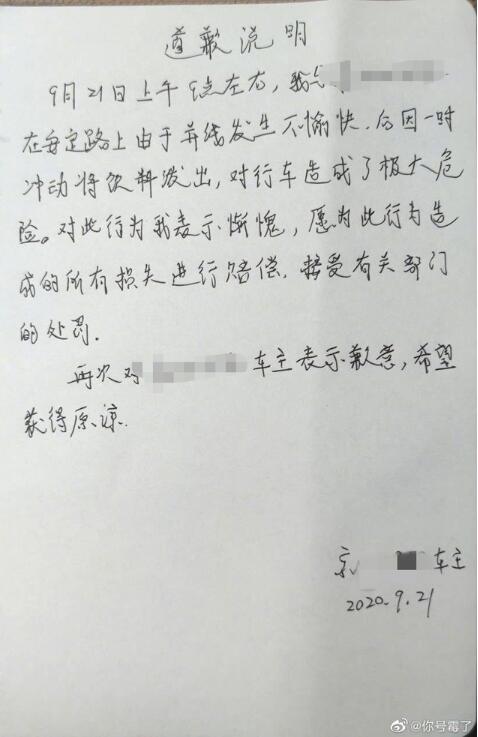 道歉说明
9月21日上午9点左右，我与
在安定路上由于并线发生不愉快，后因一时
冲动将饮料泼出，对行车造成了极大危
险。对此行为我表示惭愧，愿为此行为造
成的所有损失进行赔偿，接受有关部门
的处罚.
再次对 车主表示歉意，希望
获得原谅.
京 车主
2020.9.21
@你号霉了